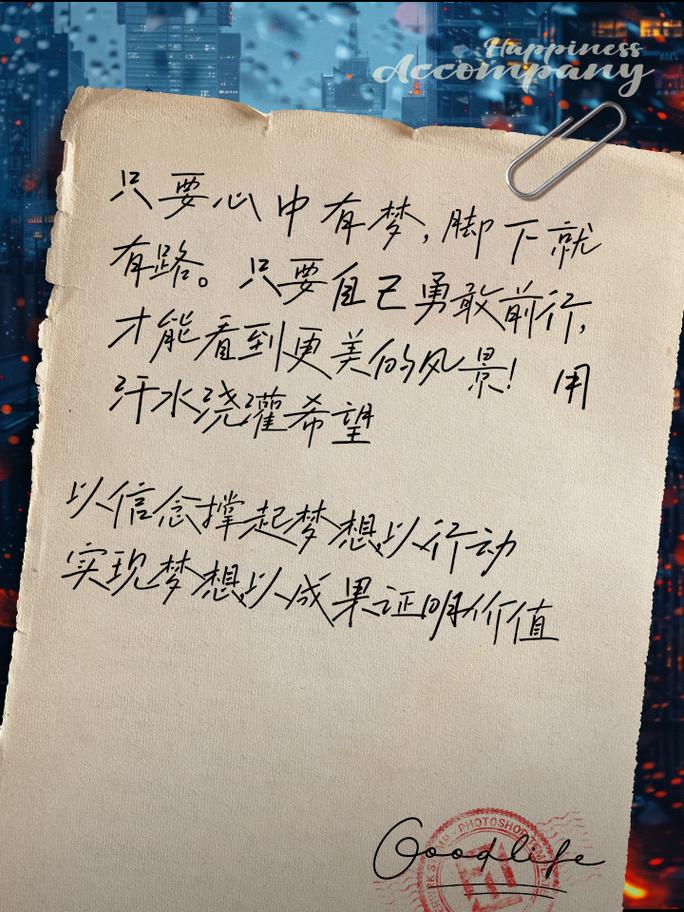 Happiness
Accompany
只要心中有梦，脚下就
有路。只要自己勇敢前行，
才能看到更美的风景！ 用
汗水浇灌希望
以信念撑起梦想,以行动
实现梦想,以成果证明价值
PHOTOSHOP
Goodlife